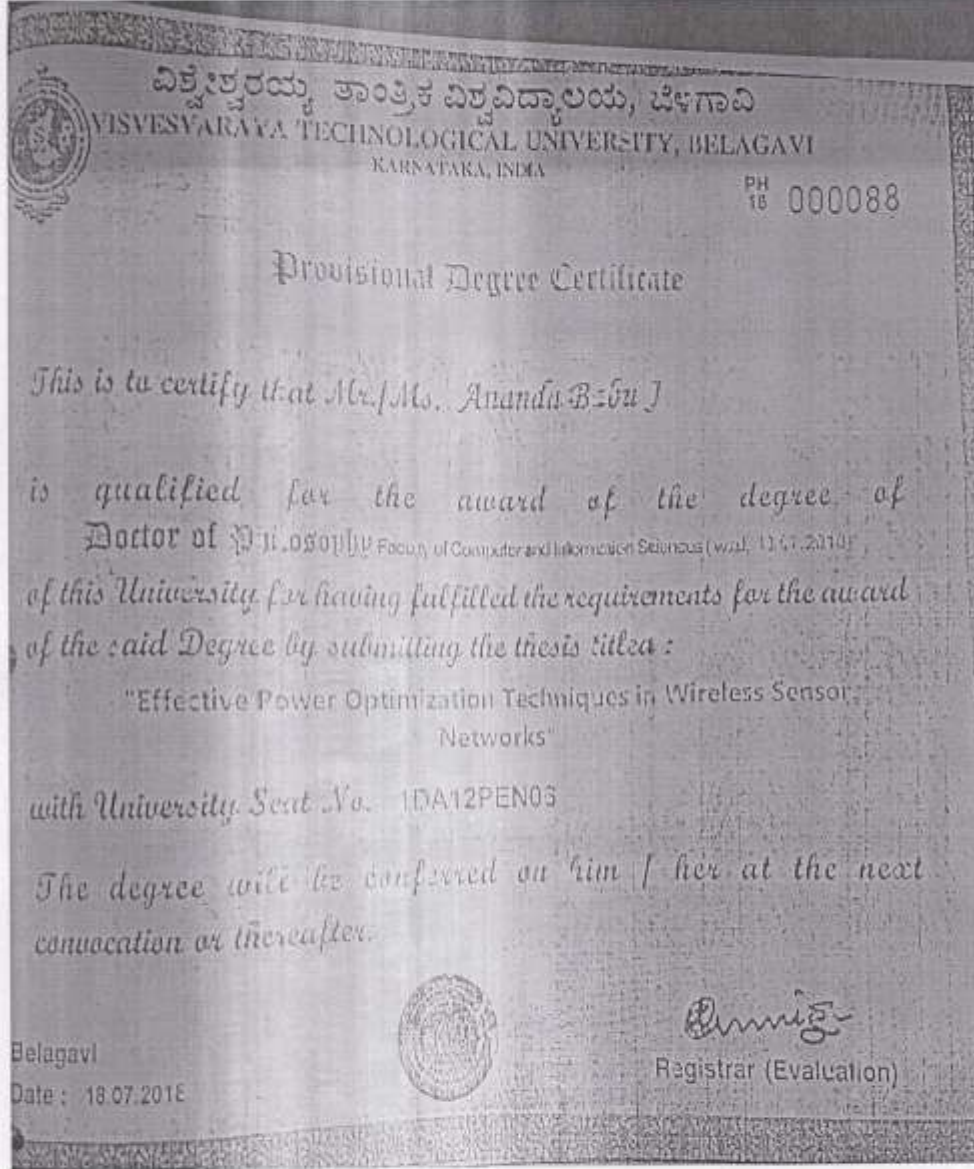 ವಿಶ್ವೇಶ್ವರಯ್ಯ ತಾಂತ್ರಿಕ ವಿಶ್ವವಿದ್ಯಾಲಯ, ಬೆಳಗಾವಿ
VISVESVARAYA TECHNOLOGICAL UNIVERSITY, BELAGAVI
KARNATAKA, INDIA
PH
18 000088
Provisional Degree Certificate
This is to certify that Mr./Ms. Ananda Babu J
is qualified for the award of the degree of
Doctor of Philosophy Faculty of Computer and Information Sciences (w.e.f.
of this University for having fulfilled the requirements for the award
of the said Degree by submitting the thesis titled :
"Effective Power Optimization Techniques in Wireless Sensor
Networks"
with University Seat No. 1DA12PEN03
The degree will be conferred on him / her at the next
convocation or thereafter.
Belagavi
Registrar (Evaluation)
Date : 18.07.2018